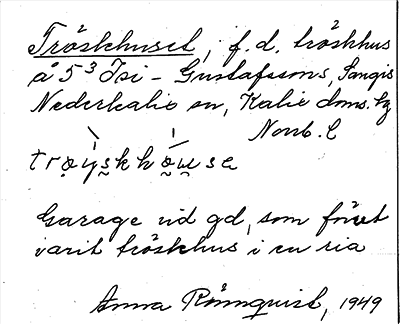 Tröskhusel, f.d. tröskhus
å 5³ Isi - Gustafssons, Sangis
Nederkalix sn, Kalix doms. hg
Norrb. l
trøyskhøuse
Garage vid gd, som förut
varit tröskhus i en ria
Anna Rönnquist, 1949